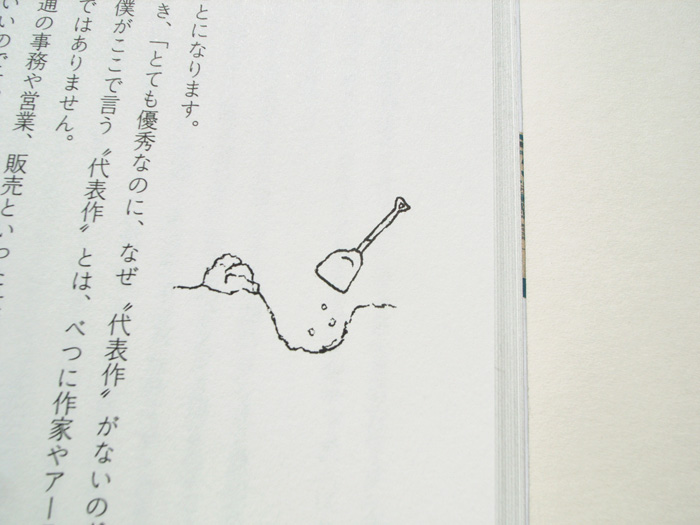 とになります。
き、「とても優秀なのに、なぜ〝代表作〟がないの
僕がここで言う〝代表作〟とは、べつに作家やアー
ではありません。
通の事務や営業、販売といっ
いいのです